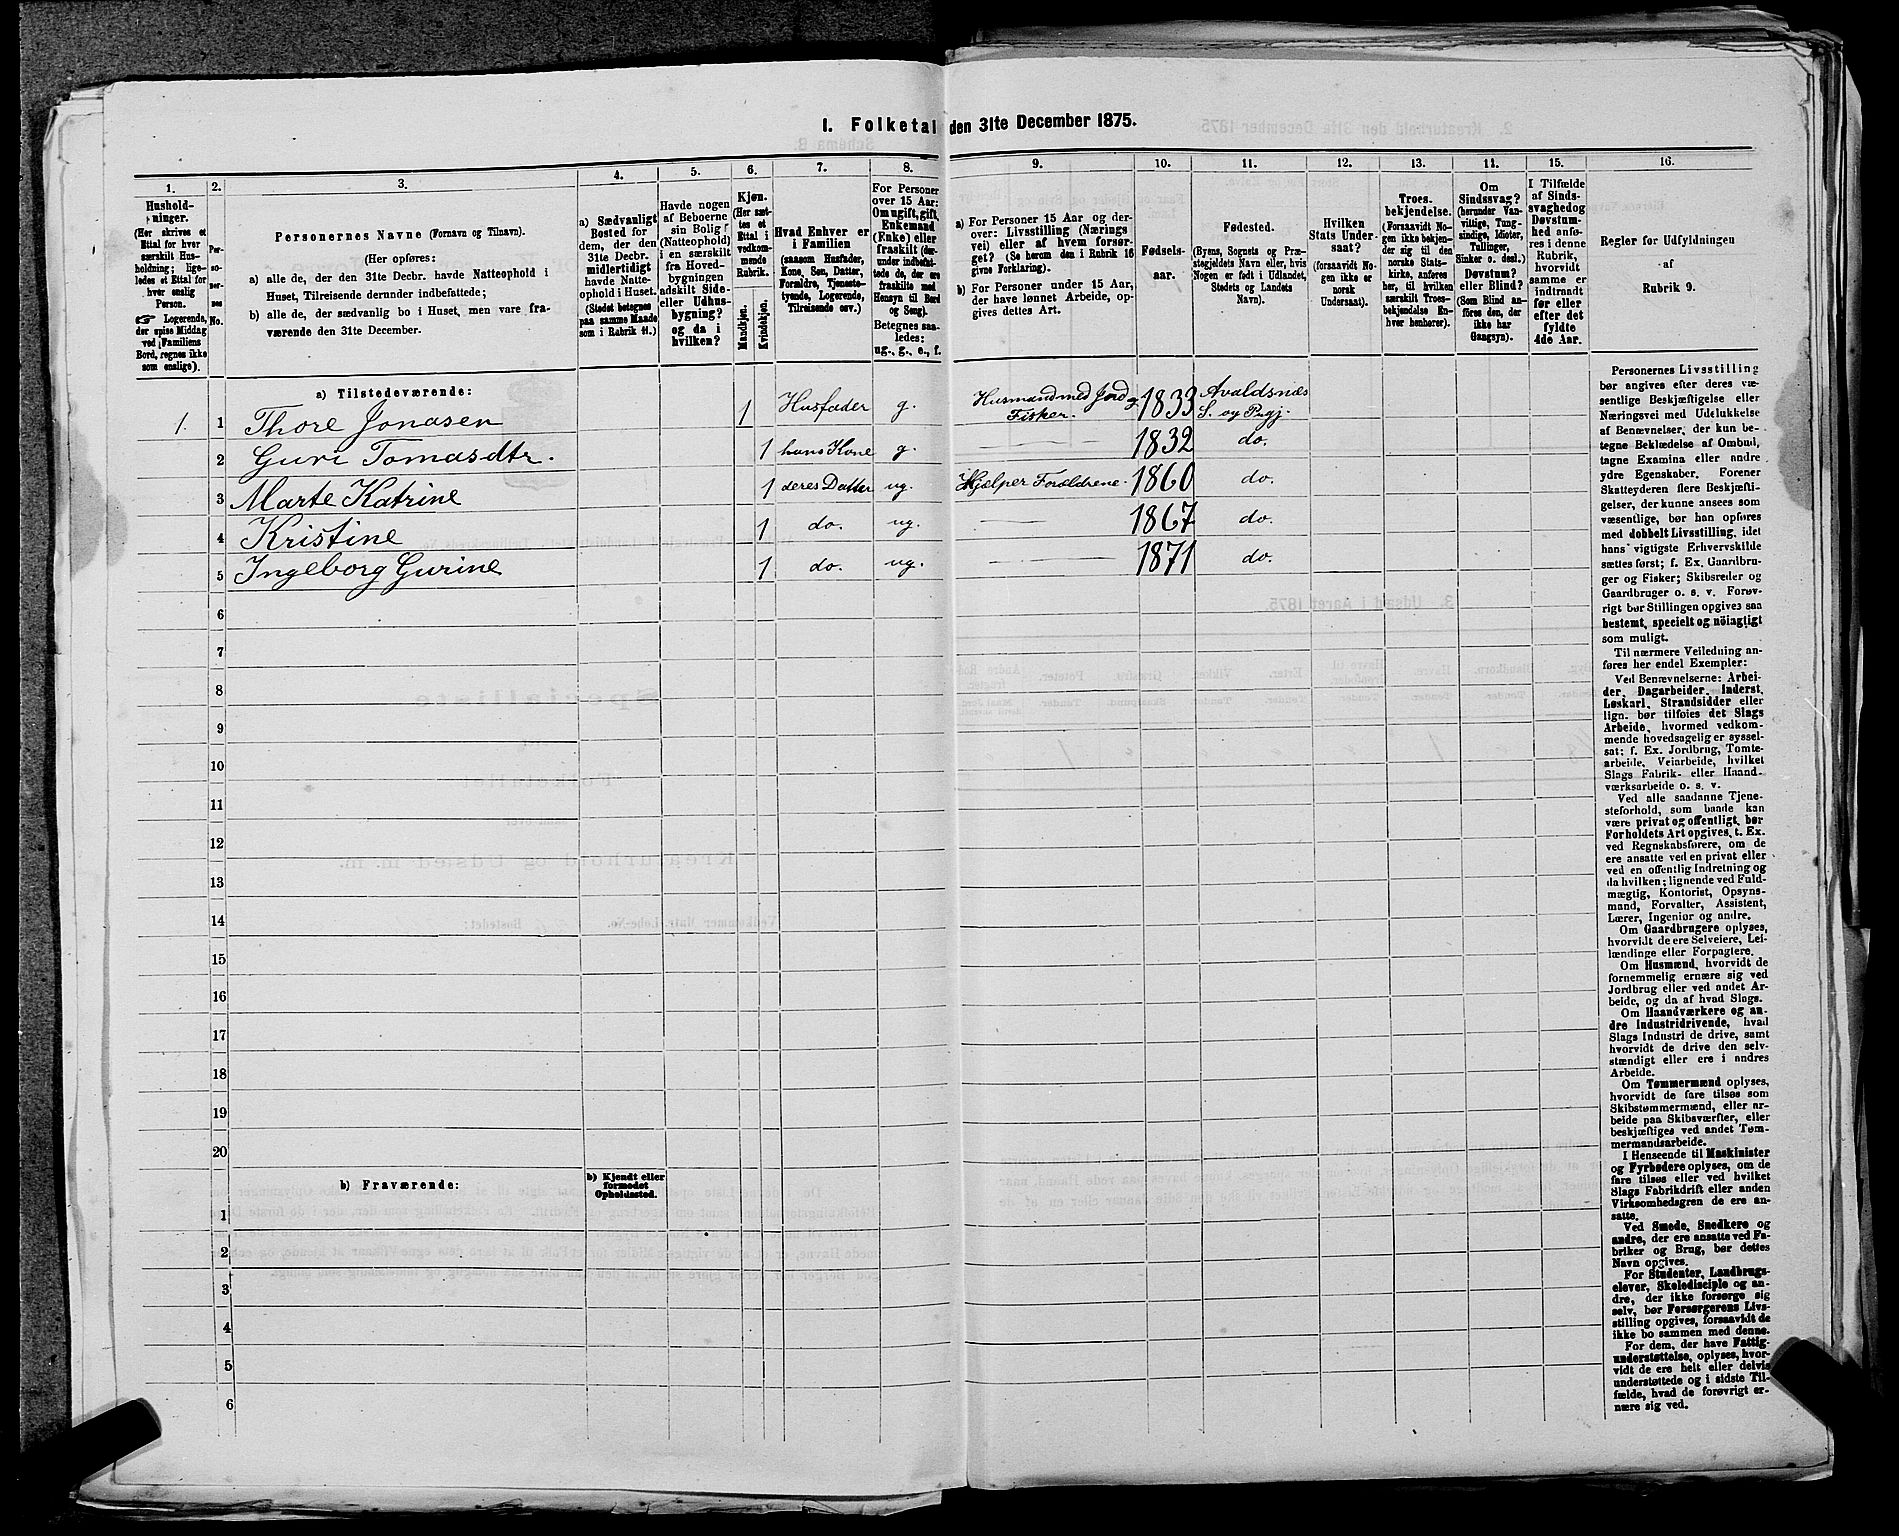 1. Folketal den 31te December 1875.
1. 2. 3. 4. 5. 6. 7. 8. 9. 10. 11. 12. 13. 14. 15. 16.
Hushold-
ninger.
(Her skrives et
Ettal for hver
særskilt Hus-
holdning; lige-
ledes et Ettal for
hver enslig
Person.
☞ Logerende,
der spise Middag
ved Familiens
Bord, regnes ikke
som enslige).
Per-
so-
ner-
nes
No.
Personernes Navne (Fornavn og Tilnavn).
(Her opføres:
a) alle de, der den 31te Decbr. havde Natteophold i
Huset, Tilreisende derunder indbefattede;
b) alle de, der sædvanlig bo i Huset, men vare fra-
værende den 31te December.
a) Sædvanligt
Bosted for
dem, der den
31te Decbr.
midlertidigt
havde Natte-
ophold i Huset.
(Stedet betegnes
paa samme Maade
som i Rubrik 11.)
Havde nogen
af Beboerne
sin Bolig
(Natteophold)
i en særskilt
fra Hoved-
bygningen
adskilt Side-
eller Udhus-
bygning?
og da i
hvilken?
Kjøn.
(Her sæt-
tes et
Ettal i
vedkom-
mende
Rubrik.
Mandkjøn.
Kvindekjøn.
Hvad Enhver er
i Familien
(saasom Husfader,
Kone, Søn, Datter,
Forældre, Tjeneste-
tyende, Logerende,
Tilreisende osv.)
For Personer
over 15 Aar:
Om ugift, gift,
Enkemand
(Enke) eller
fraskilt (der-
under indbefat-
tede de, der ere
fraskilte med
Hensyn til Bord
og Seng).
Betegnes saa-
ledes:
ug., g., e., f.
a) For Personer 15 Aar og der-
over: Livsstilling (Nærings
vei) eller af hvem forsør-
get? (Se herom den i Rubrik 16
givne Forklaring).
b) For Personer under 15 Aar,
der have lønnet Arbeide, op-
gives dettes Art.
Fødsels-
aar.
Fødested.
(Byens, Sognets og Præ-
stegjeldets Navn eller, hvis
Nogen er født i Udlandet,
Stedets og Landets
Navn).
Hvilken
Stats Under-
saat?
(forsaavidt No-
gen ikke er
norsk
Undersaat).
Troes.
bekjendelse.
(Forsaavidt No-
gen ikke bekjen-
der sig til den
norske Stats-
kirke, anføres
her, til hvilken
særskilt Troes-
bekjendelse En-
hver henhører).
Om
Sindssvag?
(herunder Van-
vittige, Tung-
sindige, Idioter,
Tullinger,
Sinker o. desl.)
Døvstum?
eller Blind?
(Som Blind an-
føres den, der
ikke har
Gangsyn).
I Tilfælde
af Sinds-
svaghed og
Døvstum-
hed anfø-
res i denne
Rubrik,
hvorvidt
samme er
indtraadt
før eller
efter det
fyldte
4de Aar.
Regler for Udfyldningen
af
Rubrik 9.
a) Tilstedeværende:
1. 1 Thore Jonasen 1 Husfader g. Husmand med Jord og Fisker. 1833 Avaldsnæs S. og Prgj.
2 Guri Tomasdtr. 1 hans Kone g. 1832 do.
3 Marte Katrine 1 deres Datter ug. Hjælper Forældrene. 1860 do.
4 Kristine 1 do. ug. 1867 do.
5 Ingeborg Gurine 1 do. ug. 1871 do.
6
7
8
9
10
11
12
13
14
15
16
17
18
19
20
b) Fraværende:
b) Kjendt eller
formodet
Opholdssted.
1
2
3
4
5
6
Personernes Livsstilling
bør angives efter deres væ-
sentlige Beskjæftigelse eller
Næringsvei med Udelukkelse
af Benævnelser, der kun be-
tegne Beklædelse af Ombud,
tagne Examina eller andre
ydre Egenskaber. Forener
Skatteyderen flere Beskjæfti-
gelser, der kunne ansees som
væsentlige, bør han opføres
med dobbelt Livsstilling, idet
hans vigtigste Erhvervskilde
sættes først; f. Ex. Gaardbru-
ger og Fisker; Skibsreder og
Gaardbruger o. s. v. Forøv-
rigt bør Stillingen opgives saa
bestemt, specielt og nöiagtigt
som muligt.
Til nærmere Veiledning an-
føres her endel Exempler:
Ved Benævnelserne: Arbei-
der, Dagarbeider, Inderst,
Løskarl, Strandsidder eller
lign. bør tilføies det Slags
Arbeide, hvormed vedkom-
mende hovedsagelig er syssel-
sat; f. Ex. Jordbrug, Tomte-
arbeide, Veiarbeide, hvilket
Slags Fabrik- eller Haand-
værksarbeide o. s. v.
Ved alle saadanne Tjene-
steforhold, som baade kan
være privat og offentligt, bør
Forholdets Art opgives, t. Ex.
ved Regnskabsførere, om de
ere ansatte ved en privat eller
ved en offentlig Indretning og
da hvilken; lignende ved Fuld-
mægtig, Kontorist, Opsyns-
mand, Forvalter, Assistent,
Lærer, Ingeniør og andre.
Om Gaardbrugere oplyses,
hvorvidt de ere Selveiere, Lei-
lændinge eller Forpagtere.
Om Husmænd, hvorvidt de
fornemmelig ernære sig ved
Jordbrug eller ved andet Ar-
beide, og da af hvad Slags.
Om Haandværkere og an-
dre Industridrivende, hvad
Slags Industri de drive, samt
hvorvidt de drive den selv-
stændigt eller ere i andres
Arbeide.
Om Tømmermænd oplyses,
hvorvidt de fare tilsøs som
Skibstømmermænd, eller ar-
beide paa Skibsværfter, eller
beskjæftiges ved andet Tøm-
mermandsarbeide.
I Henseende til Maskinister
og Fyrbødere oplyses, om de
fare tilsøs eller ved hvilket
Slags Fabrikdrift eller anden
Virksomhedsgren de ere an-
satte.
Ved Smede, Snedkere og
andre, der ere ansatte ved Fa-
briker og Brug, bør dettes
Navn opgives.
For Studenter, Landbrugs-
elever, Skoledisciple og an-
dre, der ikke forsørge sig
selv, bør Forsørgerens Livs-
stilling opgives, forsaavidt de
ikke bo sammen med denne.
For dem, der have Fattig-
understøttelse, oplyses, hvor-
vidt de ere helt eller delvis
understøttede og i sidste Til-
fælde, hvad de forøvrigt er-
nære sig ved.